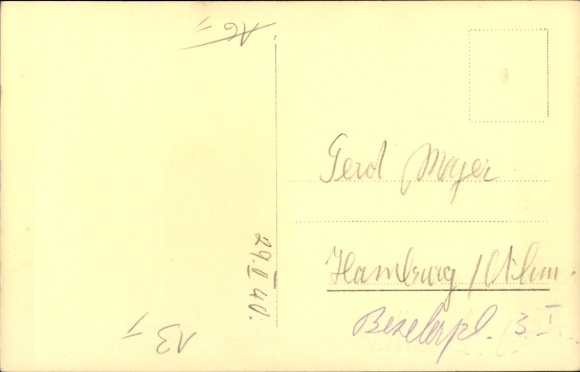 AG
Gerd Meyer
Hamburg / Othm.
Beselerpl. 3 I
29. II 40.
13